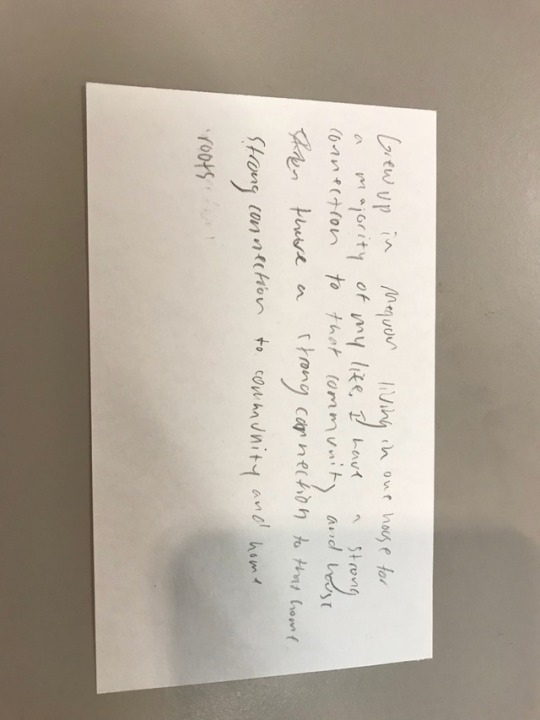 Grew up in Mequon living in one house for
a majority of my life. I have a strong
connection to that community and house
there a strong connection to that home.
strong connection to community and home
roots